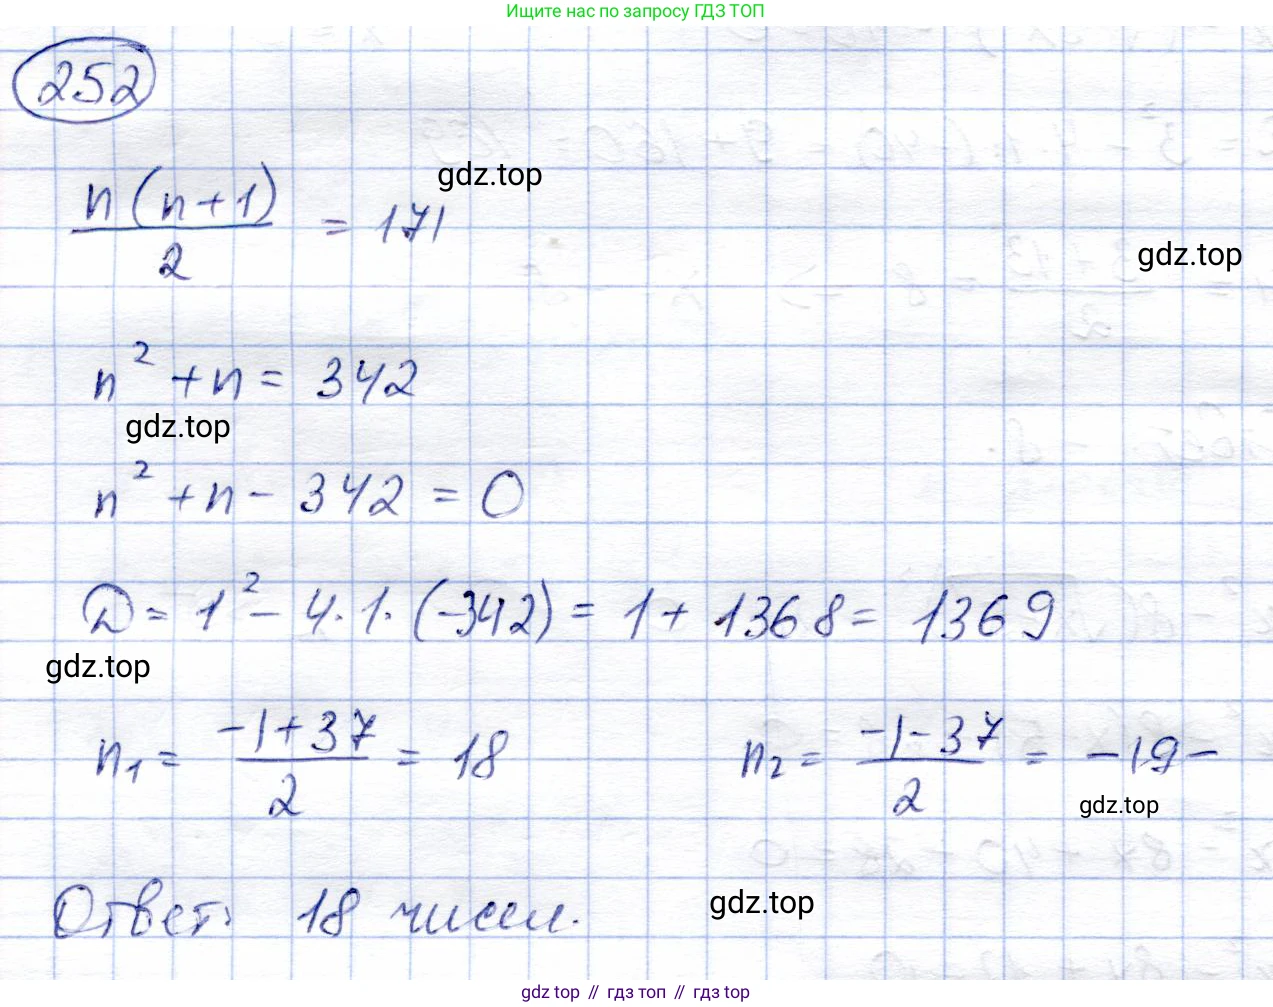 Ищите нас по запросу ГДЗ ТОП
252
n(n+1)/2 = 171
gdz.top
gdz.top
n² + n = 342
gdz.top
n² + n - 342 = 0
D = 1² - 4·1·(-342) = 1 + 1368 = 1369
gdz.top
n₁ = (-1+37)/2 = 18 n₂ = (-1-37)/2 = -19 -
gdz.top
Ответ: 18 чисел.
gdz.top
gdz top // гдз топ // gdz top